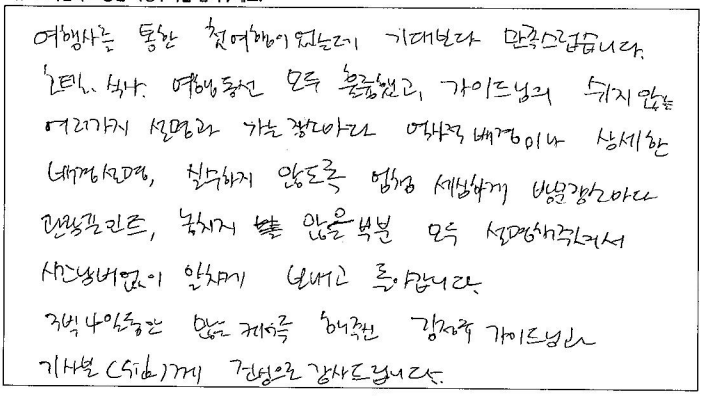 여행사를 통한 첫여행이였는데 기대보다 만족스럽습니다.
호텔, 식사, 여행동선 모두 훌륭했고, 가이드님의 쉬지 않는
여러가지 설명과 가는 장소마다 역사적 배경이나 상세한
배경설명, 실수하지 않도록 엄청 세심하게 방문장소마다
관람포인트, 놓치지 않을 부분 모두 설명해주셔서
시간낭비없이 알차게 보내고 돌아갑니다.
3박 4일동안 많은 케어를 해주신 가이드님과
기사분 께 진심으로 감사드립니다.